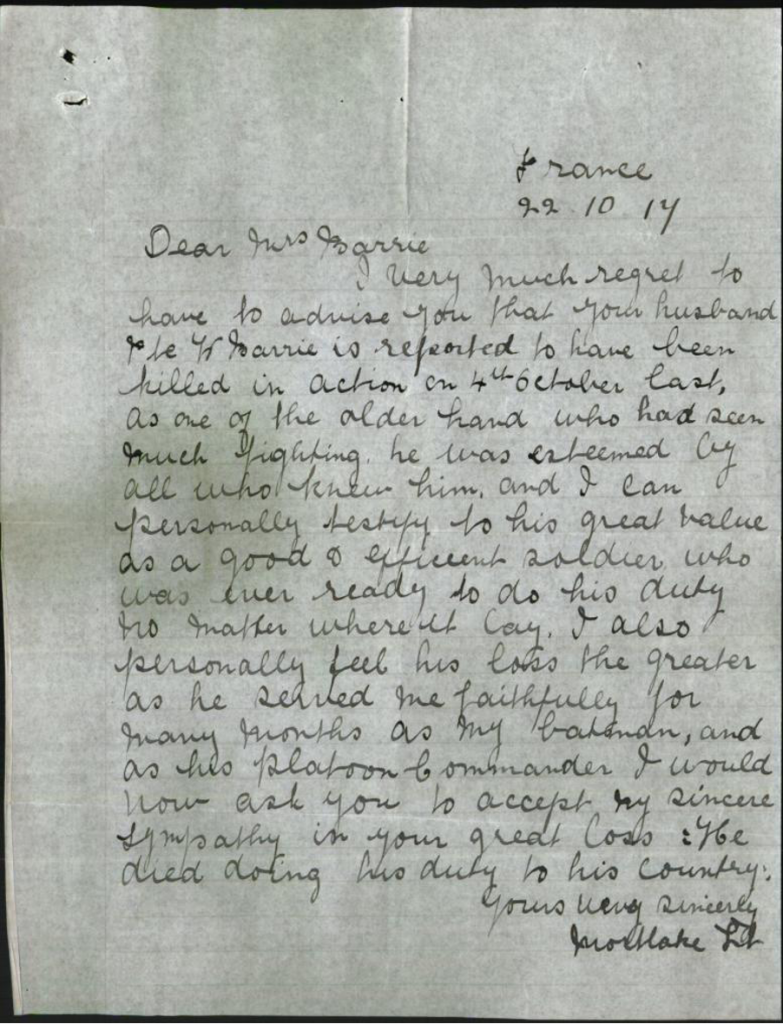 France
22 10 17
Dear Mrs Barrie
I very much regret to
have to advise you that your husband
Pte W Barrie is reported to have been
killed in action on 4th October last,
as one of the older hand who had seen
much fighting. he was esteemed by
all who knew him, and I can
personally testify to his great value
as a good & efficient soldier who
was ever ready to do his duty
no matter where it lay. I also
personally feel his loss the greater
as he served me faithfully for
many months as my batman, and
as his Platoon Commander I would
now ask you to accept my sincere
sympathy in your great loss : He
died doing his duty to his country.
Yours very sincerely
Mortlake Lt